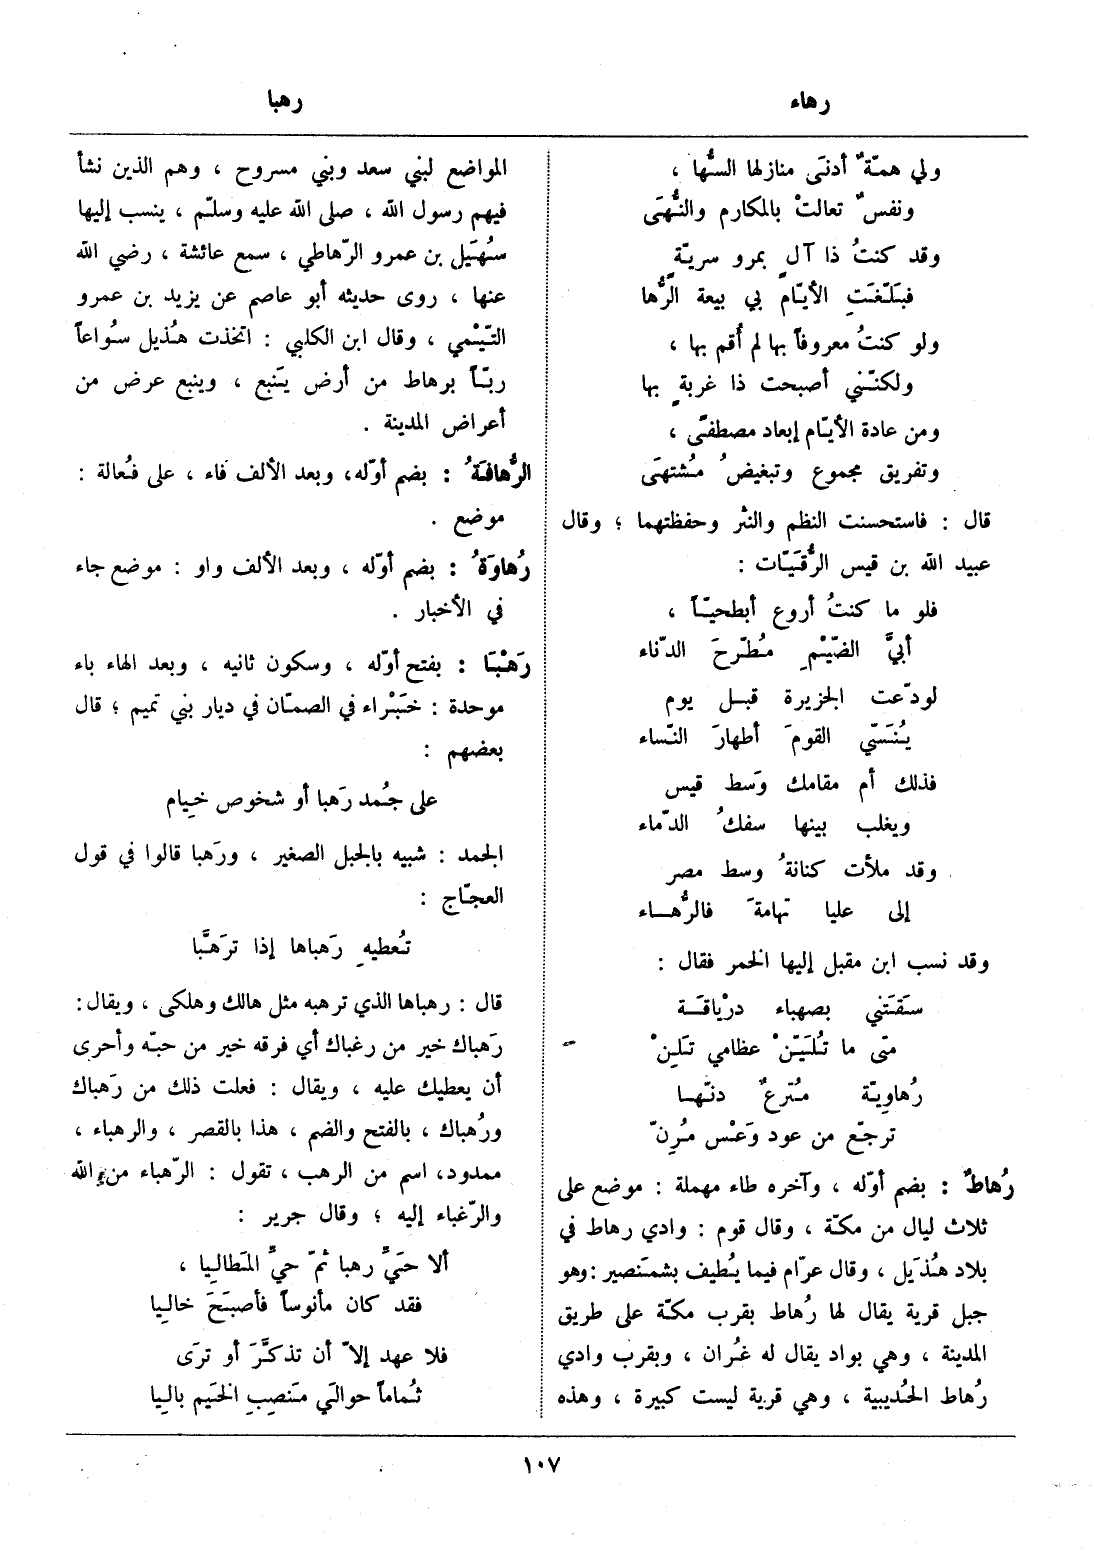 رهاء
رهبا
ولي همّةٌ أدنَى منازلها السُّها ،
ونفسٌ تعالتْ بالمكارم والنُّهَى
وقد كنتُ ذا آلٍ بمرو سريّةٍ
فبَلّغَتِ الأيّام بي بيعة الرُّها
ولو كنتُ معروفاً بها لم أُقم بها ،
ولكنّني أصبحت ذا غربةٍ بها
ومن عادة الأيّام إبعاد مصطفىً ،
وتفريق مجموع وتبغيضُ مُشتهَى
قال : فاستحسنت النظم والنثر وحفظتهما ؛ وقال
عبيد الله بن قيس الرُّقَيّات :
فلو ما كنتُ أروع أبطحيّاً ،
أبيَّ الضّيْمِ مُطّرحَ الدّناء
لودّعت الجزيرة قبل يوم
يُنَسّي القومَ أطهارَ النّساء
فذلك أم مقامك وَسط قيس
ويغلب بينها سفكُ الدّماء
وقد ملأت كنانةُ وسط مصر
إلى عليا تهامةَ فالرُّهاء
وقد نسب ابن مقبل إليها الخمر فقال :
سَقَتني بصهباء درْياقَة
متى ما تُلَيّنْ عظامي تَلِنْ
رُهاوِيّة مُتْرعٌ دنّها
ترجّع من عود وَعْس مُرِنّ
رُهاطٌ : بضم أوّله ، وآخره طاء مهملة : موضع على
ثلاث ليال من مكّة ، وقال قوم : وادي رهاط في
بلاد هُذَيل ، وقال عرّام فيما يُطيف بشمَنصير : وهو
جبل قرية يقال لها رُهاط بقرب مكّة على طريق
المدينة ، وهي بواد يقال له غُران ، وبقرب وادي
رُهاط الحُديبية ، وهي قرية ليست كبيرة ، وهذه
المواضع لبني سعد وبني مسروح ، وهم الذين نشأ
فيهم رسول الله ، صلى الله عليه وسلّم ، ينسب إليها
سُهَيل بن عمرو الرّهاطي ، سمع عائشة ، رضي الله
عنها ، روى حديثه أبو عاصم عن يزيد بن عمرو
التّيْمي ، وقال ابن الكلبي : اتخذت هُذيل سُواعاً
ربّاً برهاط من أرض يَنبع ، وينبع عرض من
أعراض المدينة .
الرُّهافَةُ : بضم أوّله، وبعد الألف فاء ، على فُعالة :
موضع .
رُهاوَةُ : بضم أوّله ، وبعد الألف واو : موضع جاء
في الأخبار .
رَهْبَا : بفتح أوّله ، وسكون ثانيه ، وبعد الهاء باء
موحدة : خَبْراء في الصمّان في ديار بني تميم ؛ قال
بعضهم :
على جُمد رَهبا أو شخوص خيام
الجمد : شبيه بالجبل الصغير ، ورَهبا قالوا في قول
العجّاج :
تُعطيهِ رَهباها إذا ترَهّبَا
قال : رهباها الذي ترهبه مثل هالك وهلكى ، ويقال:
رَهباك خير من رغباك أي فرقه خير من حبّه وأحرى
أن يعطيك عليه ، ويقال : فعلت ذلك من رَهباك
ورُهباك ، بالفتح والضم ، هذا بالقصر ، والرهباء ،
ممدود، اسم من الرهب ، تقول : الرّهباء من الله
والرّغباء إليه ؛ وقال جرير :
ألا حَيِّ رهبا ثمّ حيِّ المَطاليا ،
فقد كان مأنوساً فأصبَحَ خالِيا
فلا عهد إلاّ أن تذكَّرَ أو ترَى
ثُماماً حوالَي مَنصِبِ الخَيم بالِيا
١٠٧